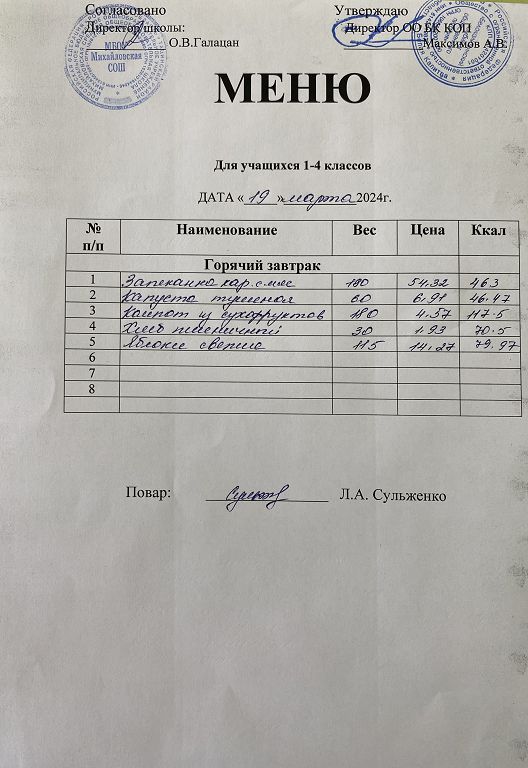 Согласовано Утверждаю
Директор школы: Директор ОО БК КОП
О.В.Галацан Максимов А.В.
МБОУ
Михайловская
СОШ
МЕНЮ
Для учащихся 1-4 классов
ДАТА « 19 » марта 2024г.
№ п/п Наименование Вес Цена Ккал
Горячий завтрак
1 Запеканка кар. с мяс 180 54,32 463
2 Капуста тушеная 60 6.91 46.47
3 Компот из сухофруктов 180 4.57 117.5
4 Хлеб пшеничный 30 1.93 70.5
5 Яблоки свежие 115 14.27 79.97
6
7
8
Повар: Л.А. Сульженко